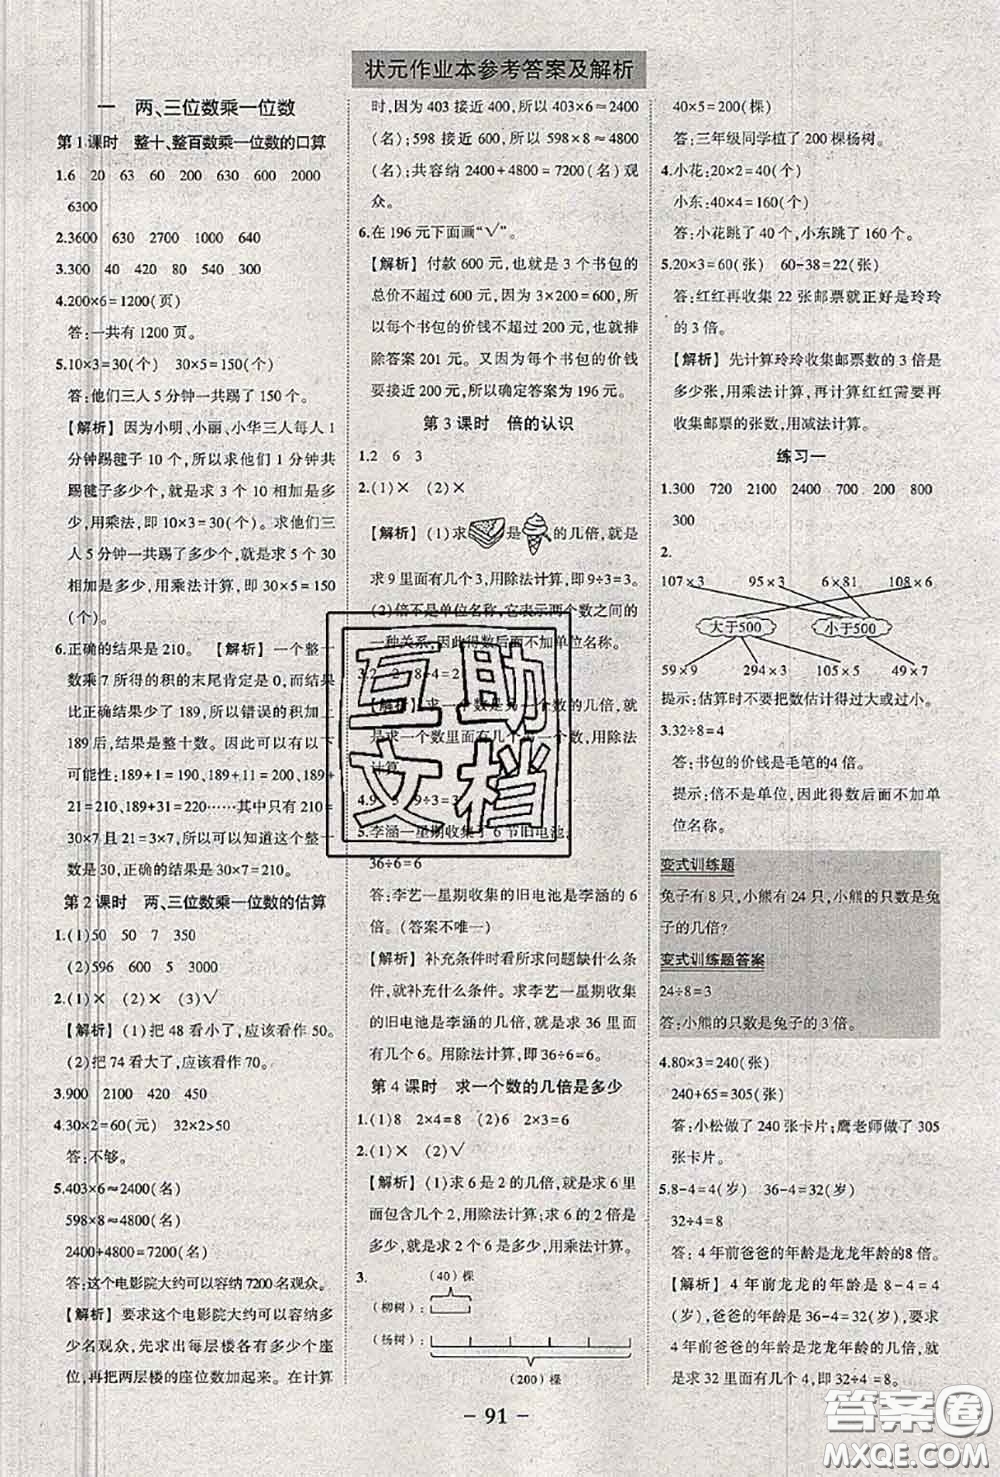 状元作业本参考答案及解析
一 两、三位数乘一位数
第1课时 整十、整百数乘一位数的口算
1.6 20 63 60 200 630 600 2000
6300
2.3600 630 2700 1000 640
3.300 40 42 120 540 900
4.200×6=1200(页)
答:一共有1200页。
5.10×3=30(个) 30×5=150(个)
答:他们三人5分钟一共踢了150个。
【解析】 因为小明、小丽、小华三人每人1
分钟踢毽子10个,所以求他们三人1分钟
踢毽子多少个,就是求3个10相加是多
少,用乘法,即10×3=30(个)。求他们三
人5分钟一共踢了多少个,就是求5个30
相加是多少,用乘法计算,即30×5=150
(个)。
6.正确的结果是210。 【解析】 一个整十
数乘7所得的积的末尾肯定是0,而189
比正确的结果少了189,所以错误的积加上
189,就应是整十数。因此可以有以下
可能性:189+1=190,189+11=200,189
+21=210,189+31=220……其中只有210
÷7=30且21=3×7,所以可以知道这个整十
数是30,正确的结果是7×30=210。
第2课时 两、三位数乘一位数的估算
1.(1)50 50 7 350
(2)596 600 5 3000
2.(1)× (2)× (3)√
【解析】 (1)把48看小了,应该看作50。
(2)把74看大了,应该看作70。
3.900 180 630 400
4.30×2=60(元) 32×2>50
答:不够。
5.403×6≈2400(名)
598×8≈4800(名)
2400+4800=7200(名)
答:这个电影院大约可以容纳7200名观众。
【解析】 要求这个电影院大约可以容纳多
少名观众,先求出每层楼各有多少个座
位,再把两层楼的座位数加起来。在计算
时,因为403接近400,所以403×6≈2400
(名);598接近600,所以598×8≈4800
(名);共容纳2400+4800=7200(名)观
众。
6.在196元下面画“√”。
【解析】 付款600元,也就是3个书包的
总价不超过600元,因为3×200=600,所
以每个书包的价钱不超过200元,也就排
除答案201元。又因为每个书包的价钱
要接近200元,所以确定答案为196元。
第3课时 倍的认识
1.2 6 3
2.(1)× (2)×
【解析】 (1)求 是 的几倍,就是
求9里面有几个3,用除法计算,即9÷3=3。
(2)倍不是单位名称,它表示两个数之间的
一种关系,因此得数后面不加单位名称。
3.2 2 8÷4=2
【解析】 求一个数是另一个数的几倍,就
是求一个数里面有几个另一个数,用除法
计算。
4.9 3 9÷3=3
5.李涵一星期收集了6节旧电池,
36÷6=6
答:李艺一星期收集的旧电池是李涵的6
倍。(答案不唯一)
【解析】 补充条件时看所求问题缺什么条
件,就补充什么条件。求李艺一星期收集
的旧电池是李涵的几倍,就是求36里面有
几个6。用除法计算,即36÷6=6。
第4课时 求一个数的几倍是多少
1.(1)8 2×4=8 (2)6 2×3=6
2.(1)× (2)√
【解析】 (1)求6是2的几倍,就是求6里
面包含几个2,用除法计算;求2的6倍是
多少,就是求2个6是多少,用乘法计算。
3.
(40)棵
(柳树)
(杨树)
(200)棵
40×5=200(棵)
答:三年级同学植了200棵杨树。
4.小花:20×2=40(个)
小东:40×4=160(个)
答:小花跳了40个,小东跳了160个。
5.20×3=60(张) 60-38=22(张)
答:红红再收集22张邮票就正好是玲玲
的3倍。
【解析】 先计算玲玲收集邮票数的3倍是
多少张,用乘法计算,再计算红红需再收
集邮票的张数,用减法计算。
练习一
1.300 720 2100 2400 700 200 800
300
2.
107×3 95×3 6×81 108×6
大于500 小于500
59×9 294×3 105×5 49×7
提示:估算时不要把数估计得过大或过小。
3.32÷8=4
答:书包的价钱是毛笔的4倍。
提示:倍不是单位,因此得数后面不加单
位名称。
变式训练题
兔子有8只,小熊有24只,小熊的只数是兔
子的几倍?
变式训练题答案
24÷8=3
答:小熊的只数是兔子的3倍。
4.80×3=240(张)
240+65=305(张)
答:小松做了240张卡片;鹰老师做了305
张卡片。
5.8-4=4(岁) 36-4=32(岁)
32÷4=8
答:4年前爸爸的年龄是龙龙年龄的8倍。
【解析】 4年前龙龙的年龄是8-4=4
(岁),爸爸的年龄是36-4=32(岁),求
4年前爸爸的年龄是龙龙年龄的几倍,就
是求32里面有几个4,即32÷4=8。
- 91 -
互助
文档
答案圈
MXQE.COM